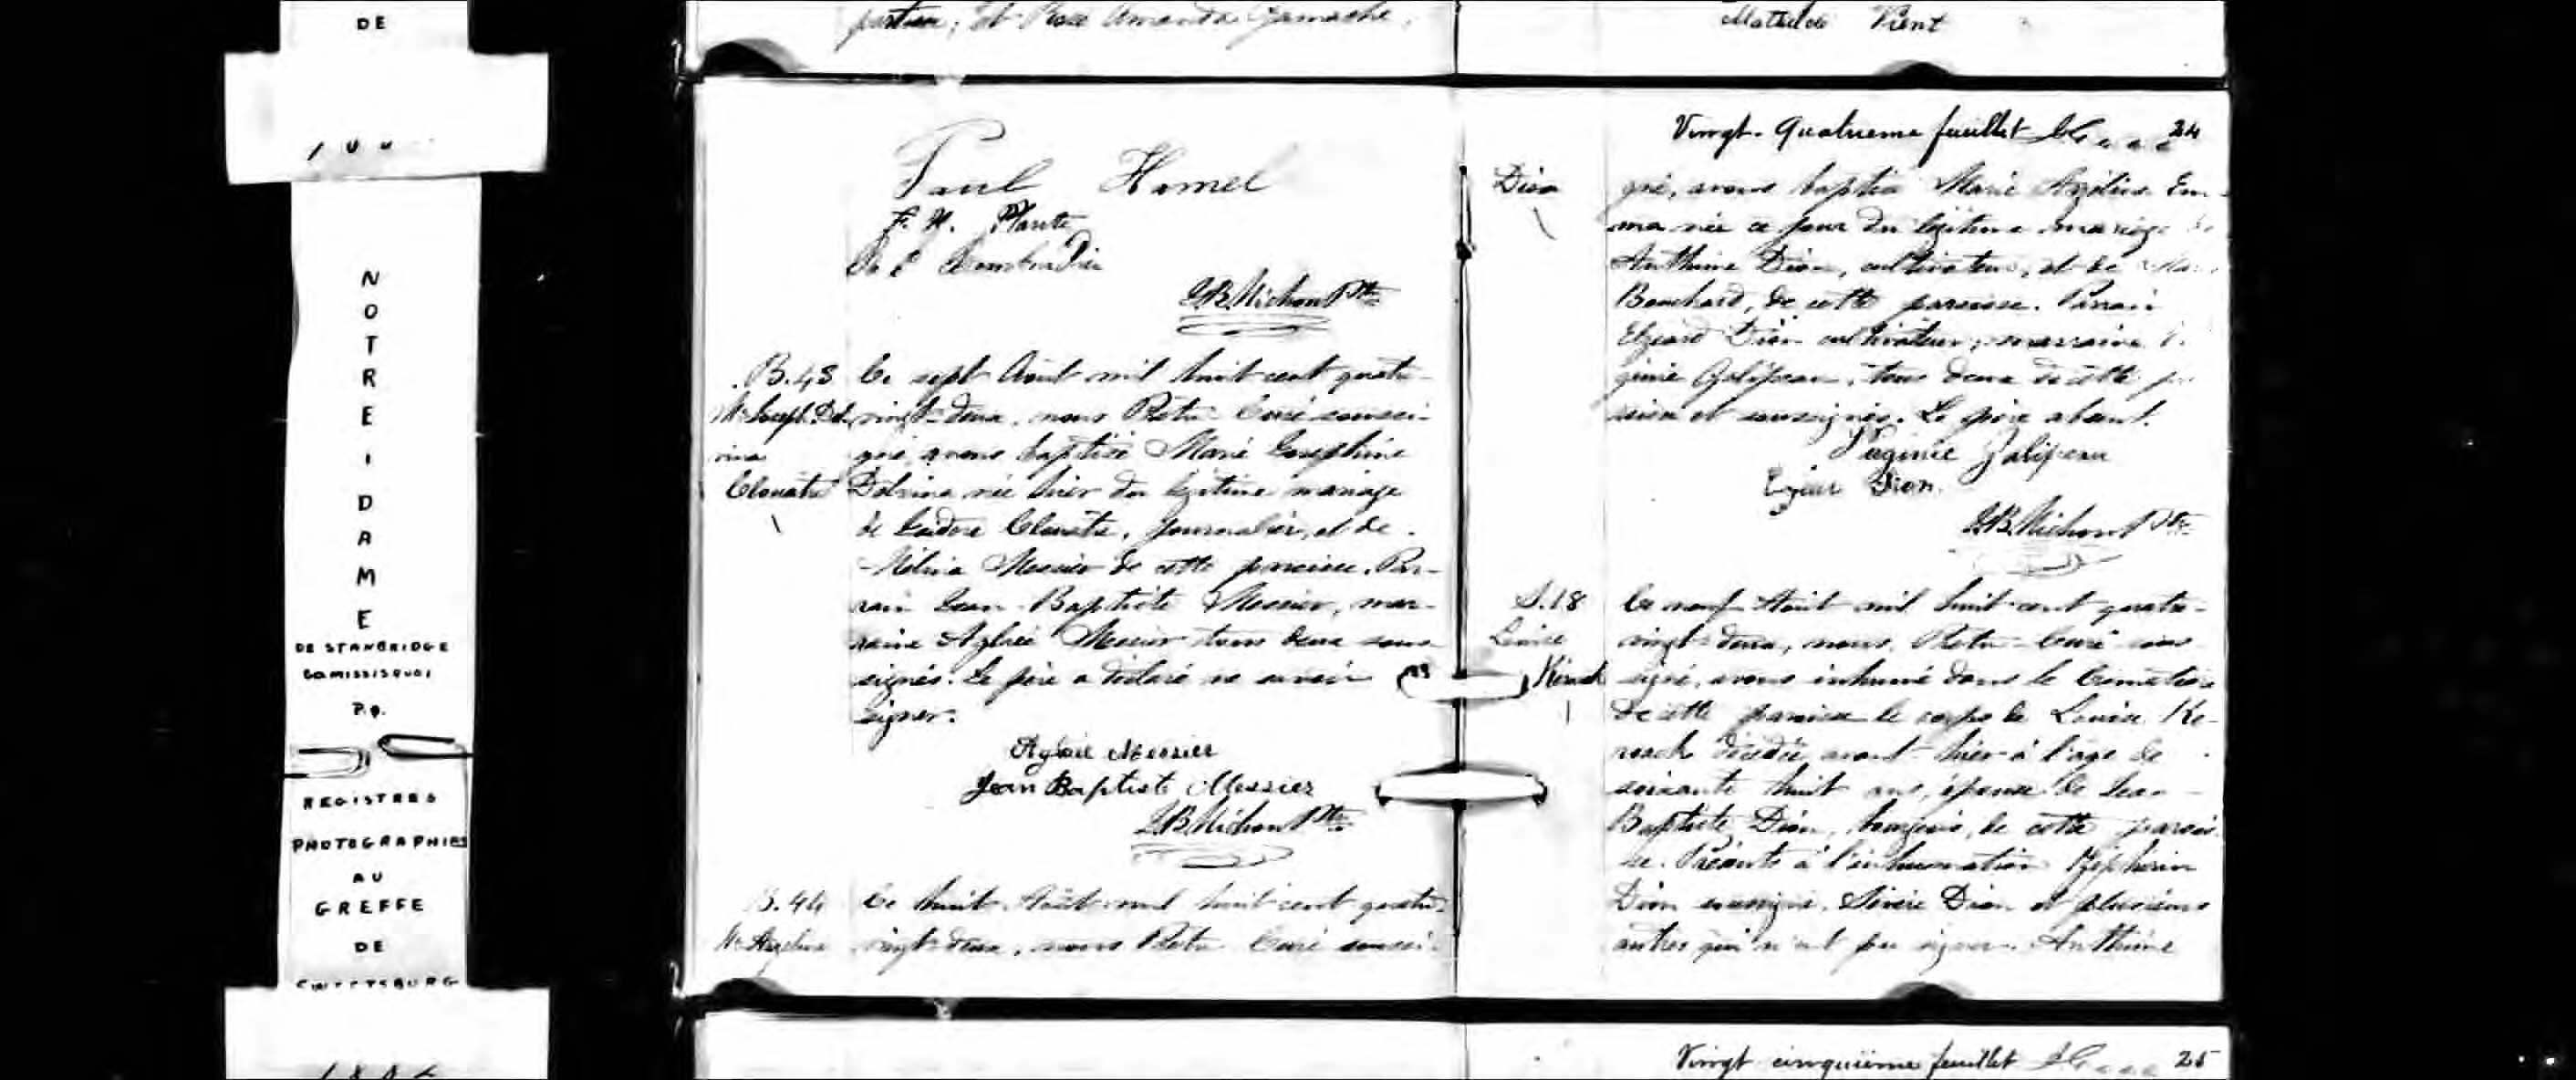 DE
NOTRE DAME
DE STANBRIDGE
Co MISSISQUOI
P.Q.
REGISTRES
PHOTOGRAPHIES
AU
GREFFE
DE
SWEETSBURG
et Rose Amanda Gamache.
Paul Hamel
F. X. Plante
J.B. Michon Ptre
B.43
M. Joseph. Del
vina
Clouatre
Ce sept Août mil huit cent quatre-
vingt-deux, nous Prêtre Curé soussi-
gné, avons baptisé Marie Josephine
Delvina née hier du légitime mariage
de Isidore Clouatre, journalier, et de
Mélina Messier de cette paroisse. Par-
rain Jean-Baptiste Messier, mar-
raine Aglaée Messier tous deux sous-
signés. Le père a déclaré ne savoir
signer.
Aglaée Messier
Jean Baptiste Messier
J.B. Michon Ptre
B.44
M. Azelina
Ce huit Août mil huit cent quatre-
vingt-deux, nous Prêtre Curé soussi-
Mathilde Vient
Vingt-Quatrieme feuillet 24
Dion
gné, avons baptisé Marie Azélina Em-
ma née ce jour du légitime mariage de
Anthime Dion, cultivateur, et de
Bouchard, de cette paroisse. Parrain
Elzéard Dion cultivateur, marraine Vir
ginie Galipeau, tous deux de cette pa
roisse et soussignés. Le père absent.
Virginie Galipeau
Dion
J.B. Michon Ptre
S.18
Louise
Kéroack
Ce neuf Août mil huit cent quatre-
vingt-deux, nous, Prêtre-Curé sous
signé, avons inhumé dans le Cimetière
de cette paroisse le corps de Louise Ké-
roack décédée avant-hier à l'âge de
soixante huit ans, épouse de Jean-
Baptiste Dion, bourgeois, de cette parois
se. Présents à l'inhumation Zéphirin
Dion soussigné, Sévère Dion et plusieurs
autres qui n'ont pu signer. Anthime
Vingt cinquième feuillet 25